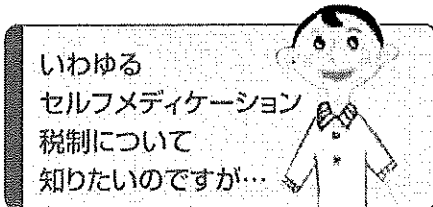 いわゆる
セルフメディケーション
税制について
知りたいのですが…